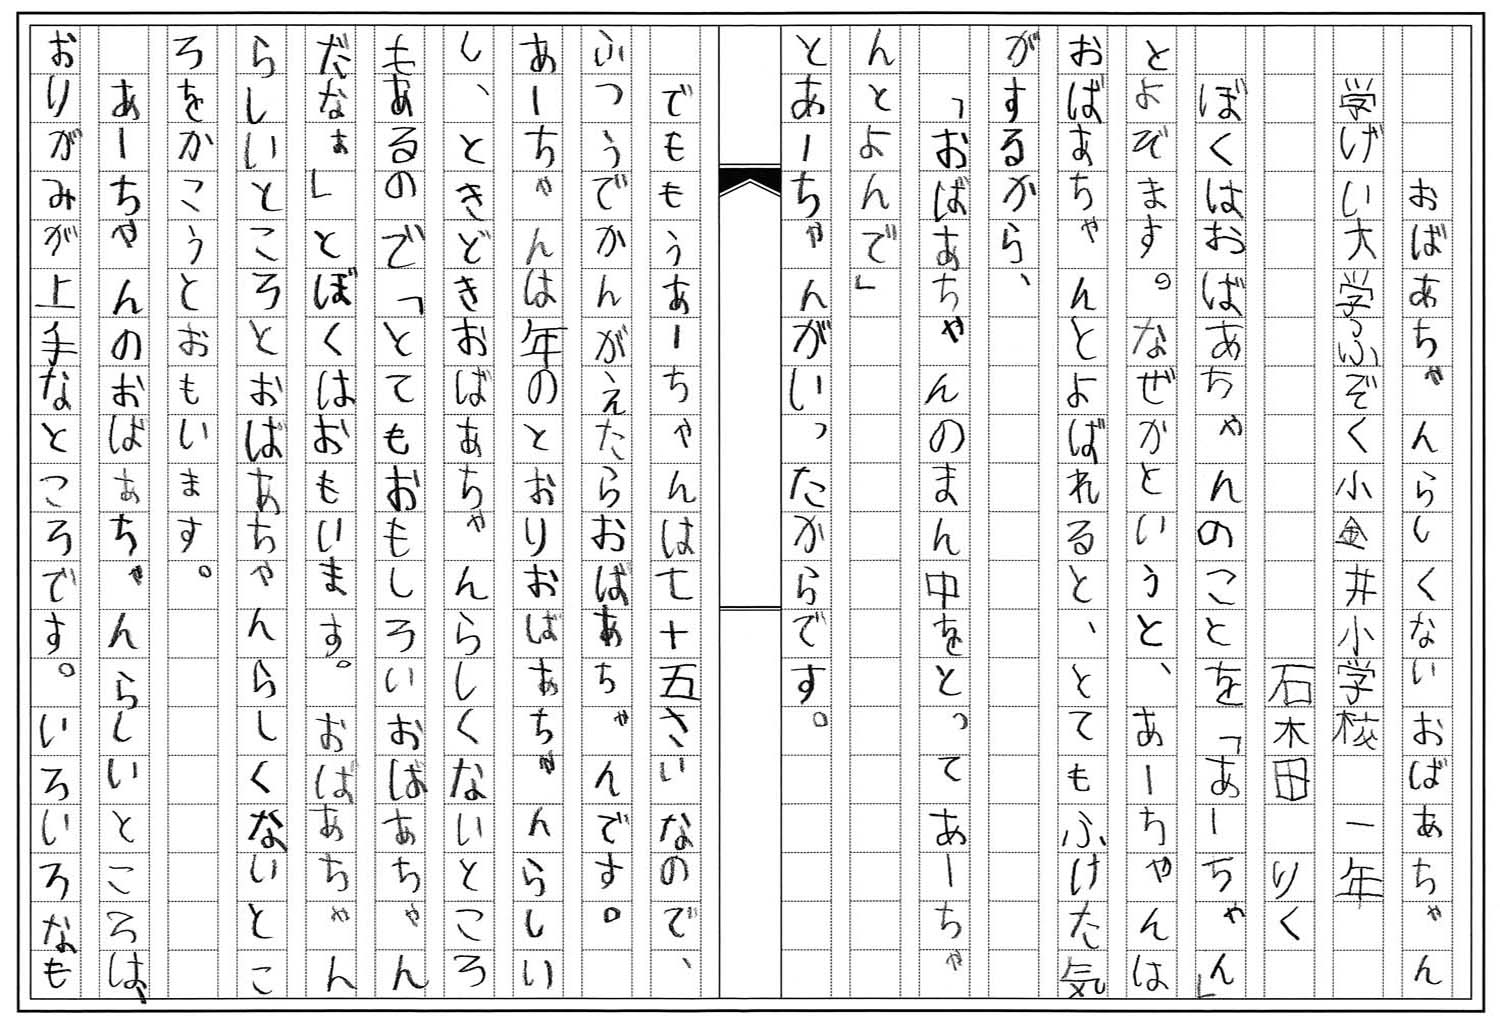 おばあちゃんらしくないおばあちゃん
学げい大学ふぞく小金井小学校 一年
石木田 りく
ぼくはおばあちゃんのことを「あーちゃん」
とよぞます。なぜかというと、あーちゃんは
おばあちゃんとよばれると、とてもふけた気
がするから、
「おばあちゃんのまん中をとってあーちゃ
んとよんで」
とあーちゃんがいったからです。
でももうあーちゃんは七十五さいなので、
ふつうでかんがえたらおばあちゃんです。
あーちゃんは年のとおりおばあちゃんらしい
し、ときどきおばあちゃんらしくないところ
もあるので「とてもおもしろいおばあちゃん
だなぁ」とぼくはおもいます。おばあちゃん
らしいところとおばあちゃんらしくないとこ
ろをかこうとおもいます。
あーちゃんのおばあちゃんらしいところは、
おりがみが上手なところです。いろいろなも